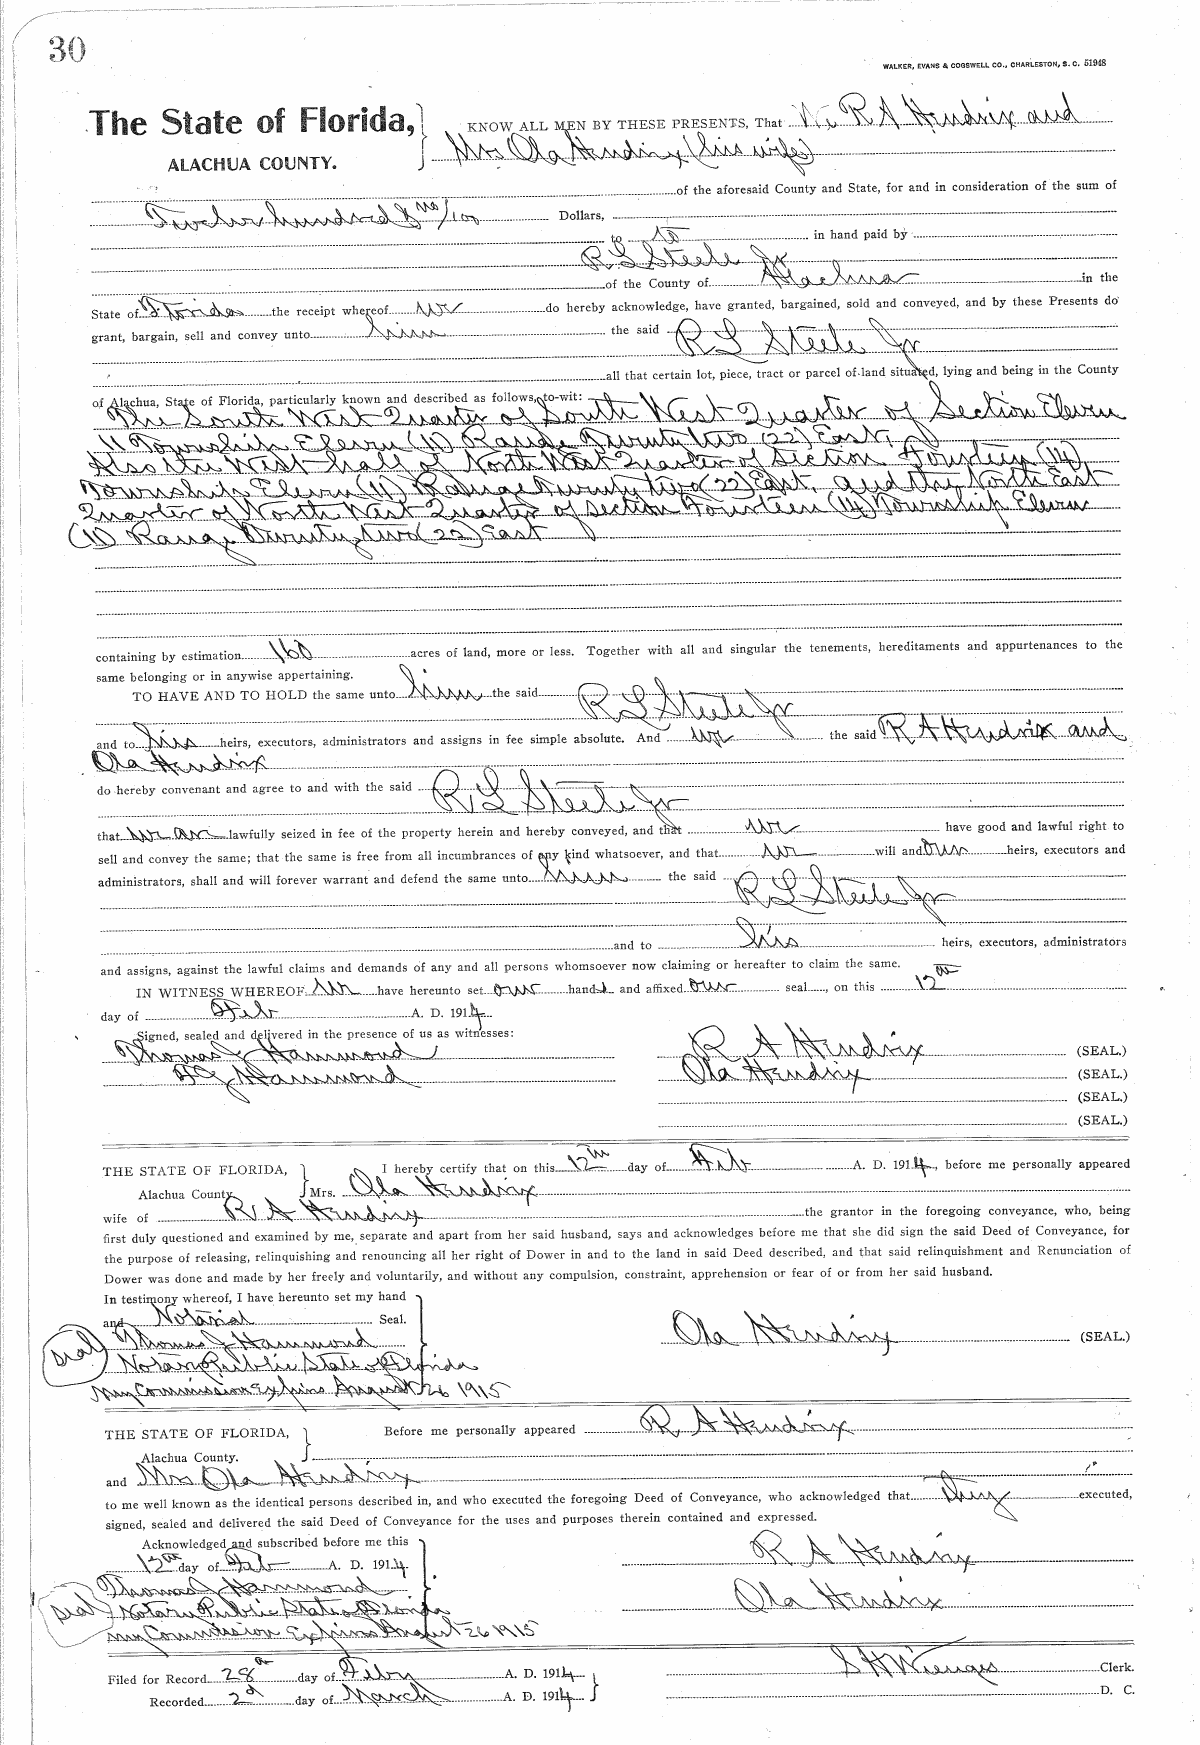 30
WALKER, EVANS & COGSWELL CO., CHARLESTON, S. C. 51948
The State of Florida, KNOW ALL MEN BY THESE PRESENTS, That We R A Hendrix and
ALACHUA COUNTY. Mrs Ola Hendrix (his wife)
of the aforesaid County and State, for and in consideration of the sum of
Twelve hundred & no/100 Dollars,
to us in hand paid by
R L Steele Jr
of the County of Alachua in the
State of Florida the receipt whereof we do hereby acknowledge, have granted, bargained, sold and conveyed, and by these Presents do
grant, bargain, sell and convey unto him the said R L Steele Jr
all that certain lot, piece, tract or parcel of land situated, lying and being in the County
of Alachua, State of Florida, particularly known and described as follows, to-wit:
The South West Quarter of South West Quarter of Section Eleven
11 Township Eleven (11) Range Twenty two (22) East,
Also the West half of North West Quarter of Section Fourteen (14)
Township Eleven (11) Range Twenty two (22) East, and the North East
Quarter of North West Quarter of Section Fourteen (14) Township Eleven
(11) Range Twenty two (22) East
containing by estimation 160 acres of land, more or less. Together with all and singular the tenements, hereditaments and appurtenances to the
same belonging or in anywise appertaining.
TO HAVE AND TO HOLD the same unto him the said R L Steele Jr
and to his heirs, executors, administrators and assigns in fee simple absolute. And we the said R A Hendrix and
Ola Hendrix
do hereby convenant and agree to and with the said R L Steele Jr
that we are lawfully seized in fee of the property herein and hereby conveyed, and that we have good and lawful right to
sell and convey the same; that the same is free from all incumbrances of any kind whatsoever, and that we will and our heirs, executors and
administrators, shall and will forever warrant and defend the same unto him the said R L Steele Jr
and to his heirs, executors, administrators
and assigns, against the lawful claims and demands of any and all persons whomsoever now claiming or hereafter to claim the same.
IN WITNESS WHEREOF we have hereunto set our hands and affixed our seal, on this 12th
day of Feb A. D. 1914
Signed, sealed and delivered in the presence of us as witnesses:
Thomas J Hammond R A Hendrix (SEAL.)
Hammond Ola Hendrix (SEAL.)
(SEAL.)
(SEAL.)
THE STATE OF FLORIDA, I hereby certify that on this 12th day of Feb A. D. 1914, before me personally appeared
Alachua County. Mrs. Ola Hendrix
wife of R A Hendrix the grantor in the foregoing conveyance, who, being
first duly questioned and examined by me, separate and apart from her said husband, says and acknowledges before me that she did sign the said Deed of Conveyance, for
the purpose of releasing, relinquishing and renouncing all her right of Dower in and to the land in said Deed described, and that said relinquishment and Renunciation of
Dower was done and made by her freely and voluntarily, and without any compulsion, constraint, apprehension or fear of or from her said husband.
In testimony whereof, I have hereunto set my hand
and Notarial Seal.
Seal Thomas J Hammond Ola Hendrix (SEAL.)
Notary Public State of Florida
My Commission Expires August 26 1915
THE STATE OF FLORIDA, Before me personally appeared R. A Hendrix
Alachua County.
and Mrs Ola Hendrix
to me well known as the identical persons described in, and who executed the foregoing Deed of Conveyance, who acknowledged that they executed,
signed, sealed and delivered the said Deed of Conveyance for the uses and purposes therein contained and expressed.
Acknowledged and subscribed before me this
12th day of Feb A. D. 1914. R A Hendrix
Thomas J Hammond
Seal Notary Public State of Florida Ola Hendrix
My Commission Expires August 26 1915
Filed for Record 28th day of Feby A. D. 1914 S H Wienges Clerk.
Recorded 2d day of March A. D. 1914 D. C.